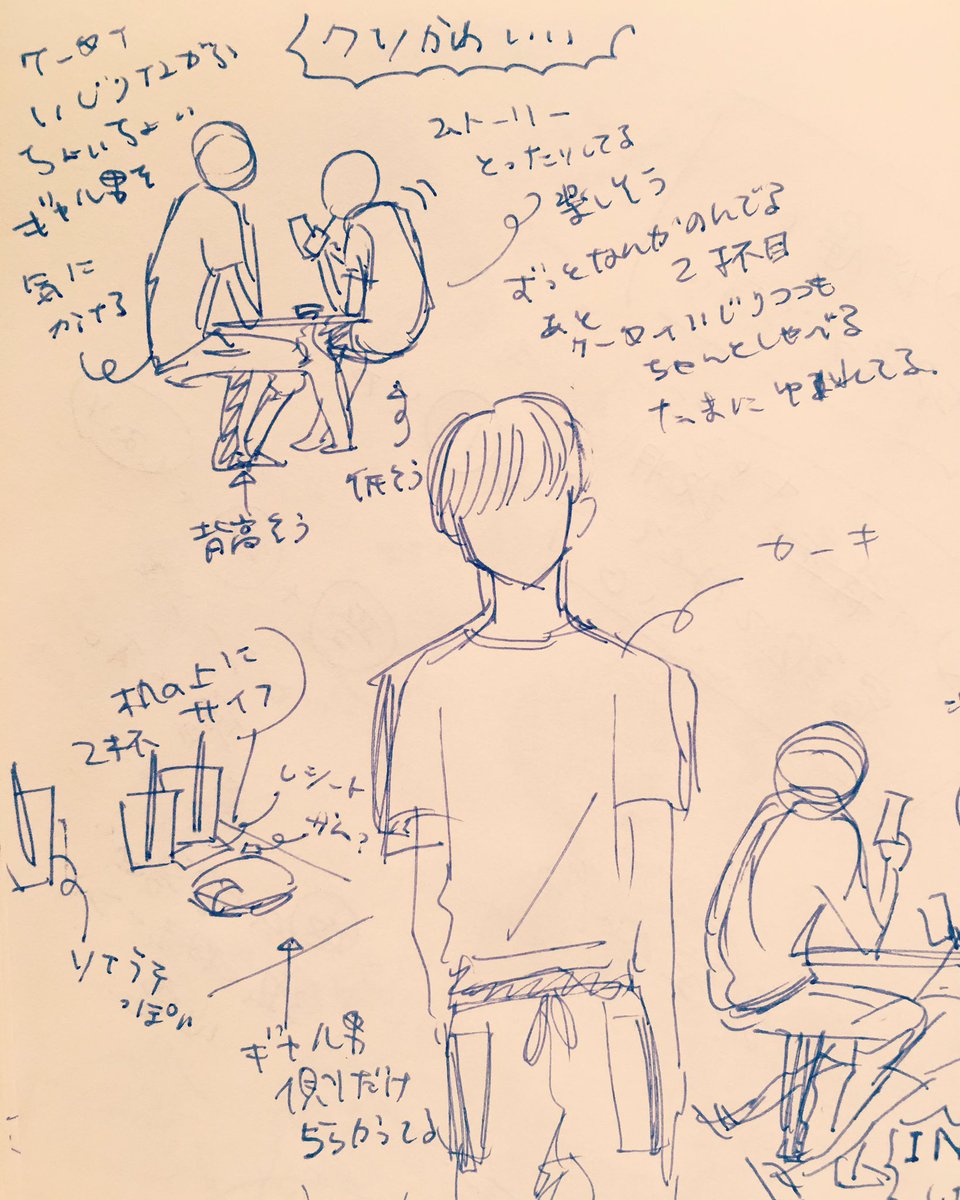 クソかわいい
ケータイ
いじりながら
ちょいちょい
ギャル男を
気に
かける
ストーリー
とったりしてる
楽しそう
ずっとなんかのんでる
2杯目
あと
ケータイいじりつつも
ちゃんとしゃべる
たまにゆれてる.
低そう
背高そう
カーキ
机の上に
サイフ
2杯
レシート
ガム?
リイララ
っぽい
ギャル男
側だけ
ちらかってる
IN